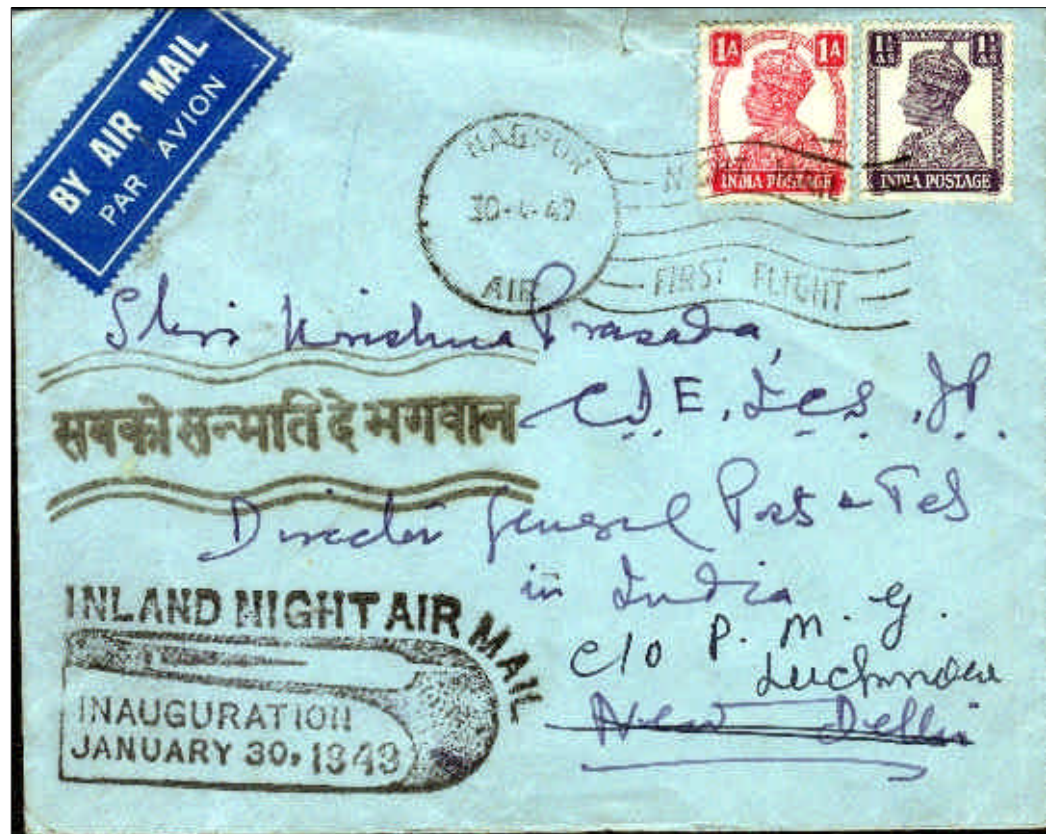 BY AIR MAIL
PAR AVION
1A 1A
INDIA POSTAGE
1½ AS 1½ AS
INDIA POSTAGE
NAGPUR
AIR
FIRST FLIGHT
Shri Krishna Prasada,
सबको सन्मति दे भगवान
C.I.E., I.C.S., J.P.
Director General Posts & Tels
in India
c/o P. M. G.
Lucknow
New Delhi
INLAND NIGHT AIR MAIL
INAUGURATION
JANUARY 30, 1949